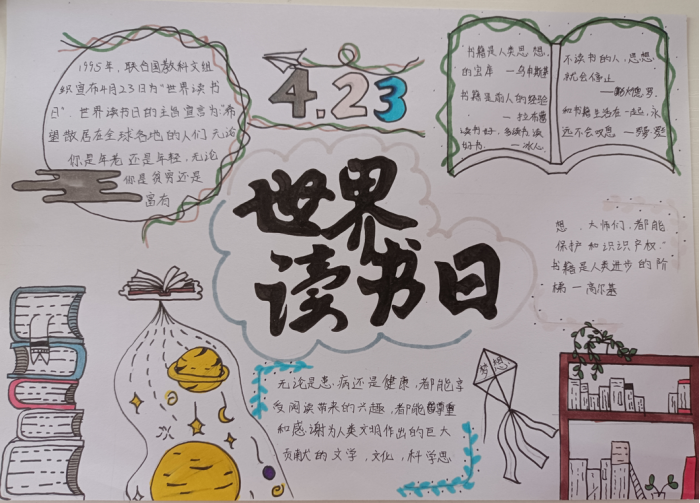 1995年，联合国教科文组
织宣布4月23日为"世界读书
日"．世界读书日的主旨宣言为："希
望散居在全球各地的人们，无论
你是年老还是年轻，无论
你是贫穷还是
富有
4.23
书籍是人类思想
的宝库 —乌申斯基
书籍是前人的经验
— 拉布雷
读书好，多读书，读
好书． — 冰心
不读书的人，思想
就会停止
和书籍生活在一起，永
远不会叹息 —罗曼·罗兰
世界
读书日
想，大师们，都能
保护知识识产权."
书籍是人类进步的阶
梯 — 高尔基
梦想
无论是患病还是健康，都能享
受阅读带来的兴趣，都能尊重
和感谢为人类文明作出的巨大
贡献的文学，文化，科学思